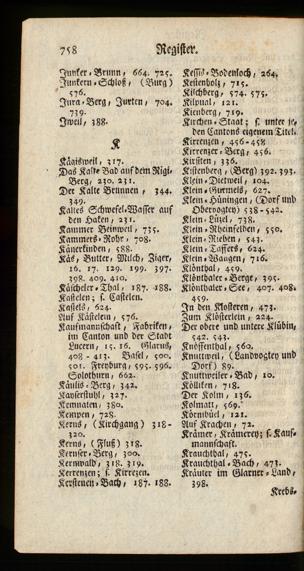 758 Register.
Junker-Brunn, 664. 725.
Junkern-Schloß, (Burg)
576.
Jura-Berg, Jurten, 704.
739.
Jweil, 388.
K
Käaisweil, 317.
Das Kalte-Bad auf dem Rigi-
Berg, 230. 231.
Der Kalte Brunnen, 344.
349.
Kaltes Schwefel-Wasser auf
den Haken, 231.
Kammer Beinweil, 735.
Kammers-Rohr, 708.
Känerkinden, 588.
Käs, Butter, Milch, Ziger,
16. 17. 129. 199. 397.
398. 409. 410.
Käscheler-Thal, 187. 188.
Kastelen; s. Castelen.
Kastels, 624.
Auf Kästelein, 576.
Kaufmannschaft, Fabriken,
im Canton und der Stadt
Lucern, 15. 16. Glarus,
408-413. Basel, 500.
501. Freyburg, 595. 596.
Solothurn, 662.
Käulis-Berg, 342.
Kayserstuhl, 327.
Kemnaten, 380.
Kempen, 728.
Kerns, (Kirchgang) 318-
320.
Kerns, (Fluß) 318.
Kernser-Berg, 300.
Kernwald, 318. 319.
Kerrenzen; s. Kirrezen.
Kerstenen-Bach, 187. 188.
Kessis-Bodenloch, 264.
Kestenholz, 715.
Kilchberg, 574. 575.
Kilpual, 121.
Kienberg, 719.
Kirchen-Staat; s. unter je-
den Cantons eigenem Titel.
Kirrenzen, 456-458
Kirrenzer-Berg, 456.
Kirsiten, 336.
Kistenberg, (Berg) 392. 393.
Klein-Dietweil, 104.
Klein-Germeis, 627.
Klein-Hüningen, (Dorf und
Obervogtey) 538-542.
Klein-Lüzel, 738.
Klein-Rheinfelden, 550.
Klein-Riehen, 547.
Klein-Taffers, 624.
Klein-Wangen, 716.
Klönthal, 459.
Klönthaler-Berg, 395.
Klönthaler-See, 407. 408.
459.
In den Klosteren, 473.
Zum Klösterlein, 224.
Der obere und untere Klübin,
542. 543.
Knöffenthal, 560.
Knuttweil, (Landvogtey und
Dorf) 89.
Knuttweiler-Bad, 10.
Kölliken, 718.
Der Kolm, 136.
Kolmatt, 569.
Körnbüel, 121.
Auf Krachen, 72.
Krämer, Krämerey; s. Kauf-
mannschaft.
Krauchthal, 475.
Krauchthal-Bach, 473.
Kräuter im Glarner-Land,
398.
Krebs-